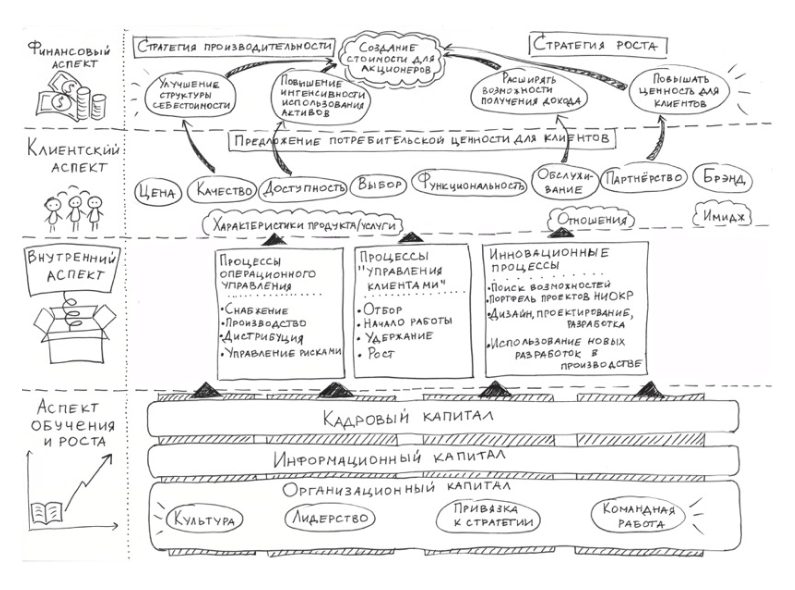 Финансовый
аспект
Стратегия производительности
Создание
стоимости для
акционеров
Стратегия роста
Улучшение
структуры
себестоимости
Повышение
интенсивности
использования
активов
Расширять
возможности
получения дохода
Повышать
ценность для
клиентов
Клиентский
аспект
Предложение потребительской ценности для клиентов
Цена
Качество
Доступность
Выбор
Функциональность
Обслужи-
вание
Партнёрство
Брэнд
Характеристики продукта/услуги
Отношения
Имидж
Внутренний
аспект
Процессы
операционного
управления
•Снабжение
•Производство
•Дистрибуция
•Управление рисками
Процессы
"управления
клиентами"
•Отбор
•Начало работы
•Удержание
•Рост
Инновационные
процессы
•Поиск возможностей
•Портфель проектов НИОКР
•Дизайн, проектирование,
разработка
•Использование новых
разработок в
производстве
Аспект
обучения
и роста
Кадровый капитал
Информационный капитал
Организационный капитал
Культура
Лидерство
Привязка
к стратегии
Командная
работа